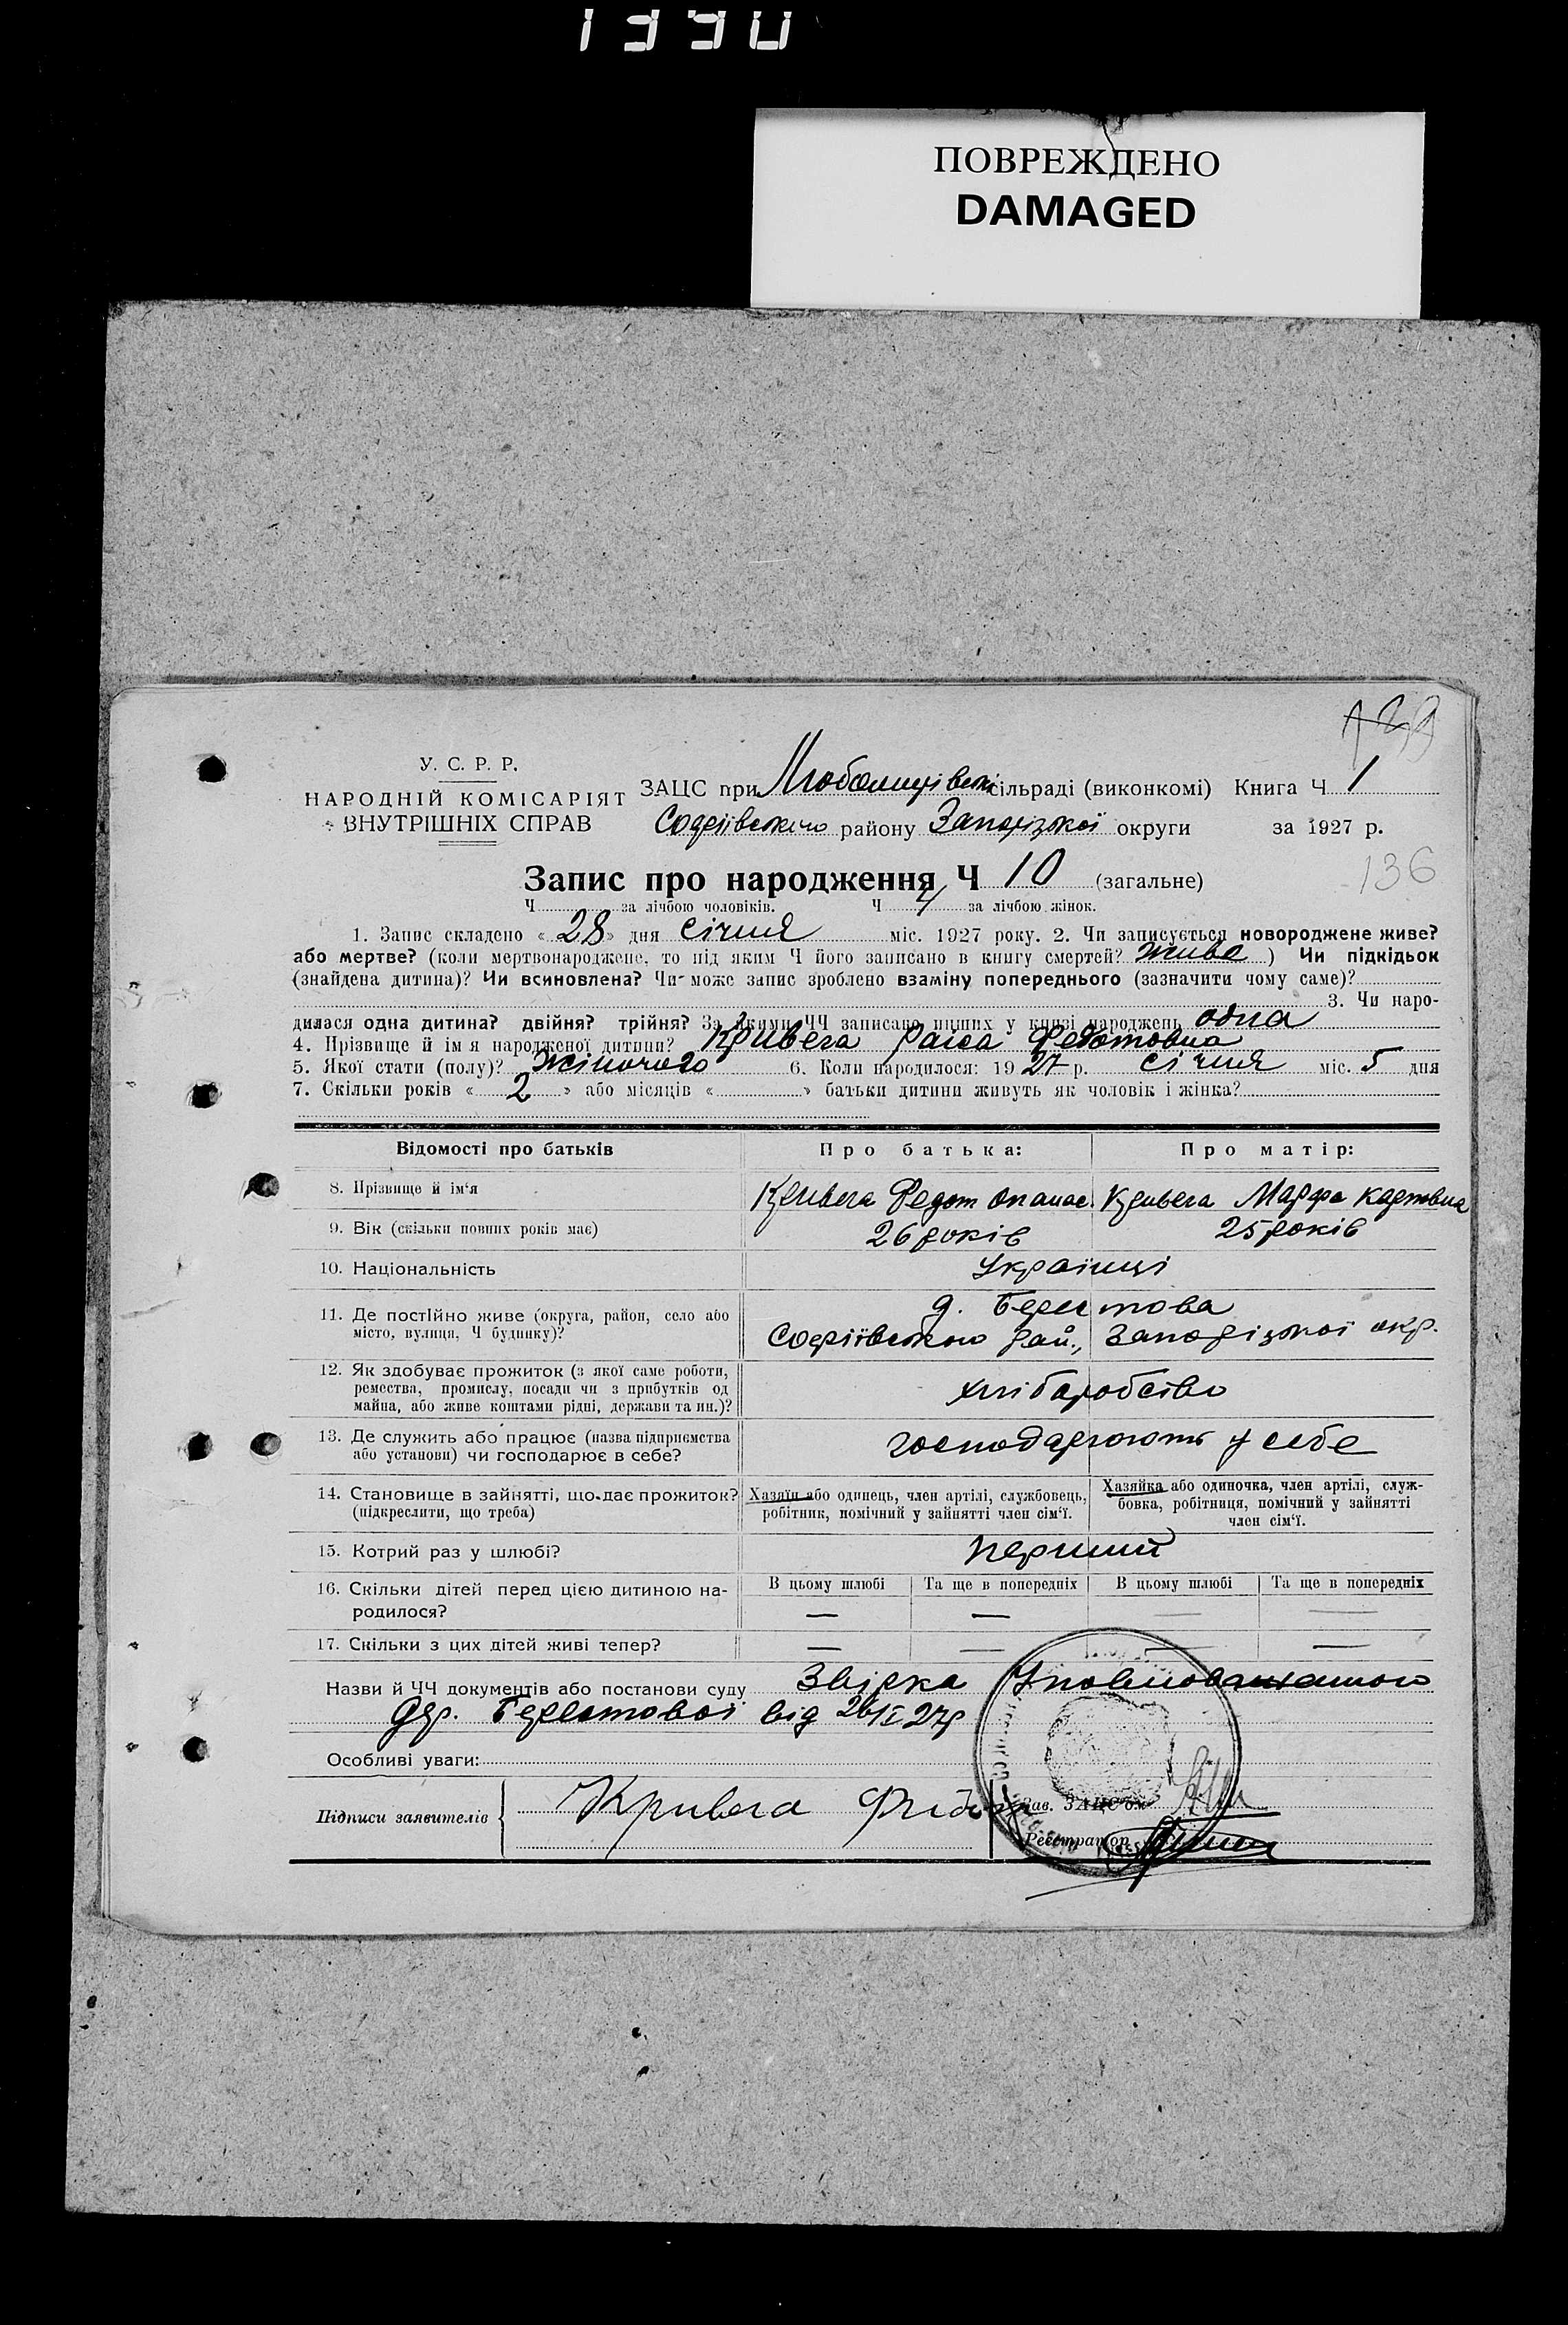 1990
ПОВРЕЖДЕНО
DAMAGED
У. С. Р. Р.
НАРОДНІЙ КОМІСАРІЯТ
ВНУТРІШНІХ СПРАВ
ЗАЦС при Любомирівські сільраді (виконкомі) Книга Ч 1
Софіївського району Запорізької округи за 1927 р.
136
Запис про народження Ч 10 (загальне)
Ч за лічбою чоловіків. Ч 4 за лічбою жінок.
1. Запис складено « 28 » дня січня міс. 1927 року. 2. Чи записується новороджене живе?
або мертве? (коли мертвонароджене, то під яким Ч його записано в книгу смертей? живе ) Чи підкідьок
(знайдена дитина)? Чи всиновлена? Чи може запис зроблено взаміну попереднього (зазначити чому саме)?
3. Чи наро-
дилася одна дитина? двійня? трійня? За якими ЧЧ записано инших у книзі народжень одна
4. Прізвище й ім я народженої дитини? Кривега Раїса Федотовна
5. Якої стати (полу)? Жіночого 6. Коли народилося: 19 27 р. січня міс. 5 дня
7. Скільки років « 2 » або місяців « » батьки дитини живуть як чоловік і жінка?
Відомості про батьків Про батька: Про матір:
8. Прізвище й ім‘я Кривега Федот Опанас. Кривега Марфа Карповна
9. Вік (скільки повних років має) 26 років 25 років
10. Національність Українці
11. Де постійно живе (округа, район, село або
місто, вулиця, Ч будинку)?
д. Берестова
Софіївського рай., Запорізької окр.
12. Як здобуває прожиток (з якої саме роботи,
ремества, промислу, посади чи з прибутків од
майна, або живе коштами рідні, держави та ин.)?
хліборобство
13. Де служить або працює (назва підприємства
або установи) чи господарює в себе?
господарюють у себе
14. Становище в зайнятті, що дає прожиток?
(підкреслити, що треба)
Хазяїн або одинець, член артілі, службовець,
робітник, помічний у зайнятті член сім‘ї.
Хазяйка або одиночка, член артілі, служ-
бовка, робітниця, помічний у зайнятті
член сім‘ї.
15. Котрий раз у шлюбі? перший
16. Скільки дітей перед цією дитиною на-
родилося?
В цьому шлюбі Та ще в попередніх В цьому шлюбі Та ще в попередніх
— — — —
17. Скільки з цих дітей живі тепер? — — — —
Назви й ЧЧ документів або постанови суду Звірка
дер. Берестової від 26/I 27р
Особливі уваги:
Підписи заявителів Кривега Федот
Зав. ЗАЦС‘ом
Реєстратор